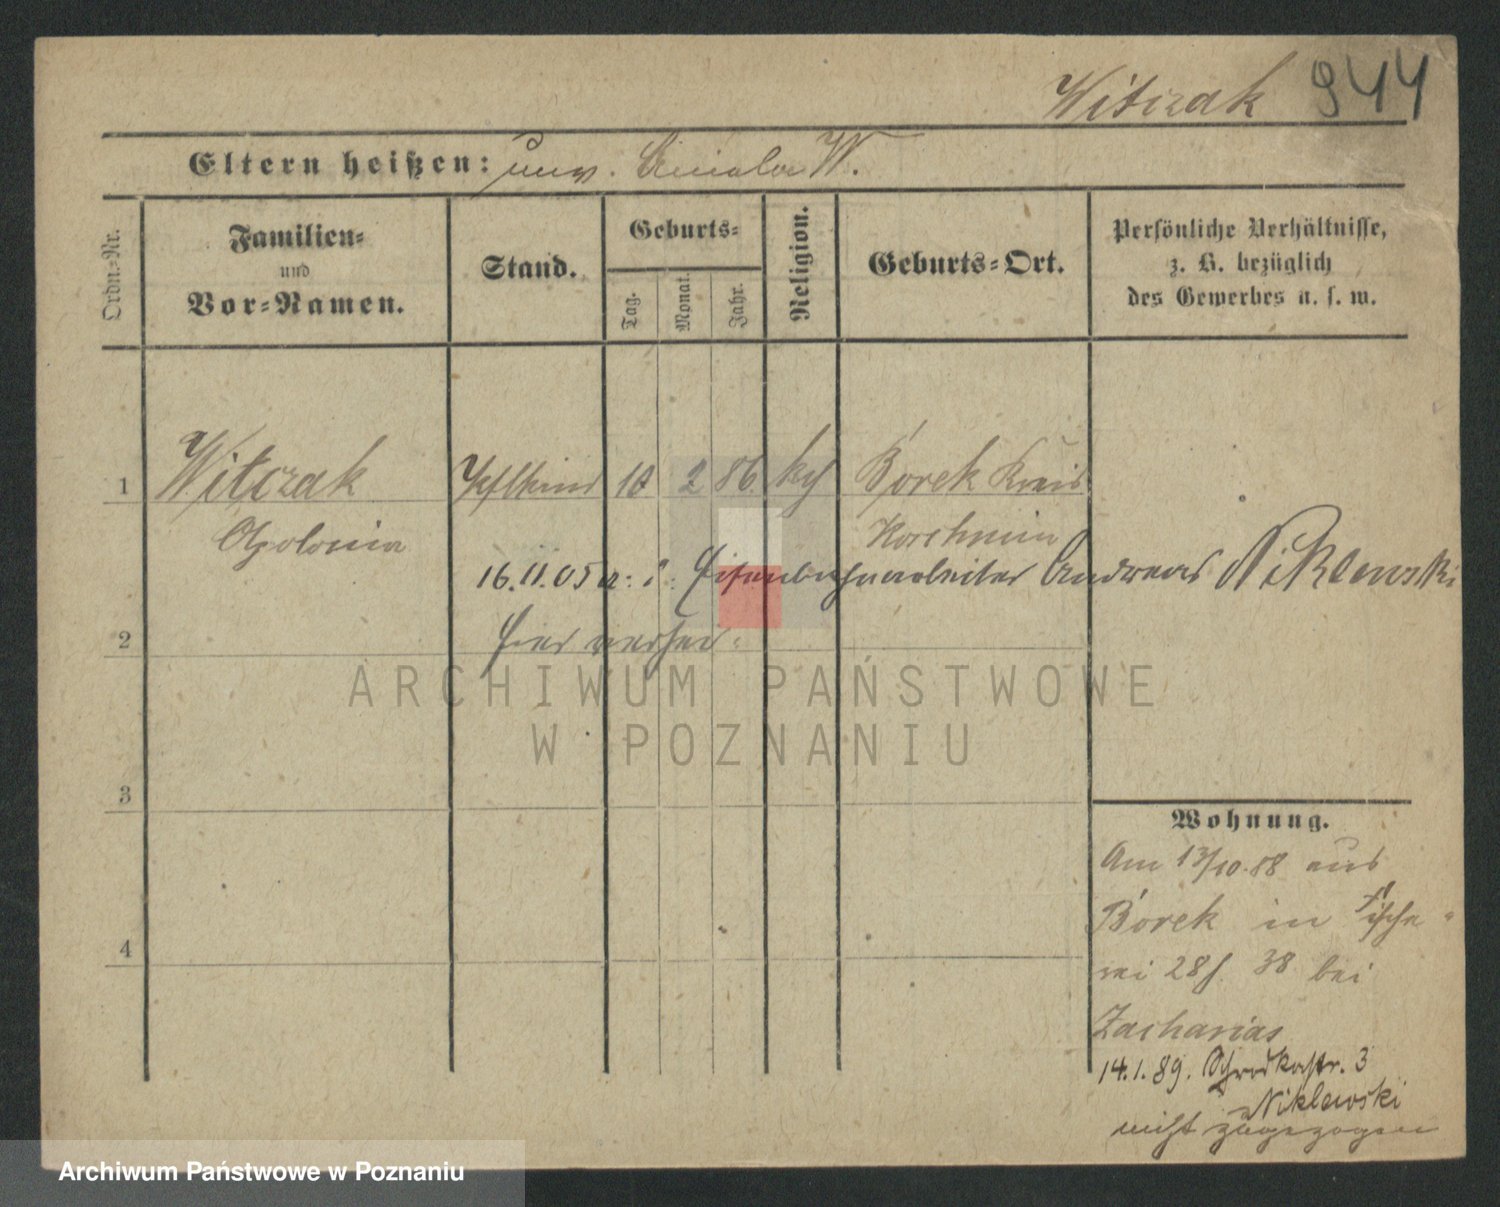 Witczak 944
Eltern heißen: unv. W.
Ordn.-Nr.
Familien-
und
Vor-Namen.
Stand.
Geburts-
Tag.
Monat.
Jahr.
Religion.
Geburts-Ort.
Persönliche Verhältnisse,
z. B. bezüglich
des Gewerbes u. s. w.
1 Witczak 2 86 Borek Kreis
Apolonia
Koschmin
16.11.05 a: d: Eisenbahnarbeiter Andreas Niklewski
2
hier verher:
ARCHIWUM PAŃSTWOWE
W POZNANIU
3
Wohnung.
Am 13/10.88 aus
Borek in Fische-
rei 28 38 bei
4
Zacharias
14.1.89. Schrodkastr. 3
Niklewski
nicht zugezogen
Archiwum Państwowe w Poznaniu